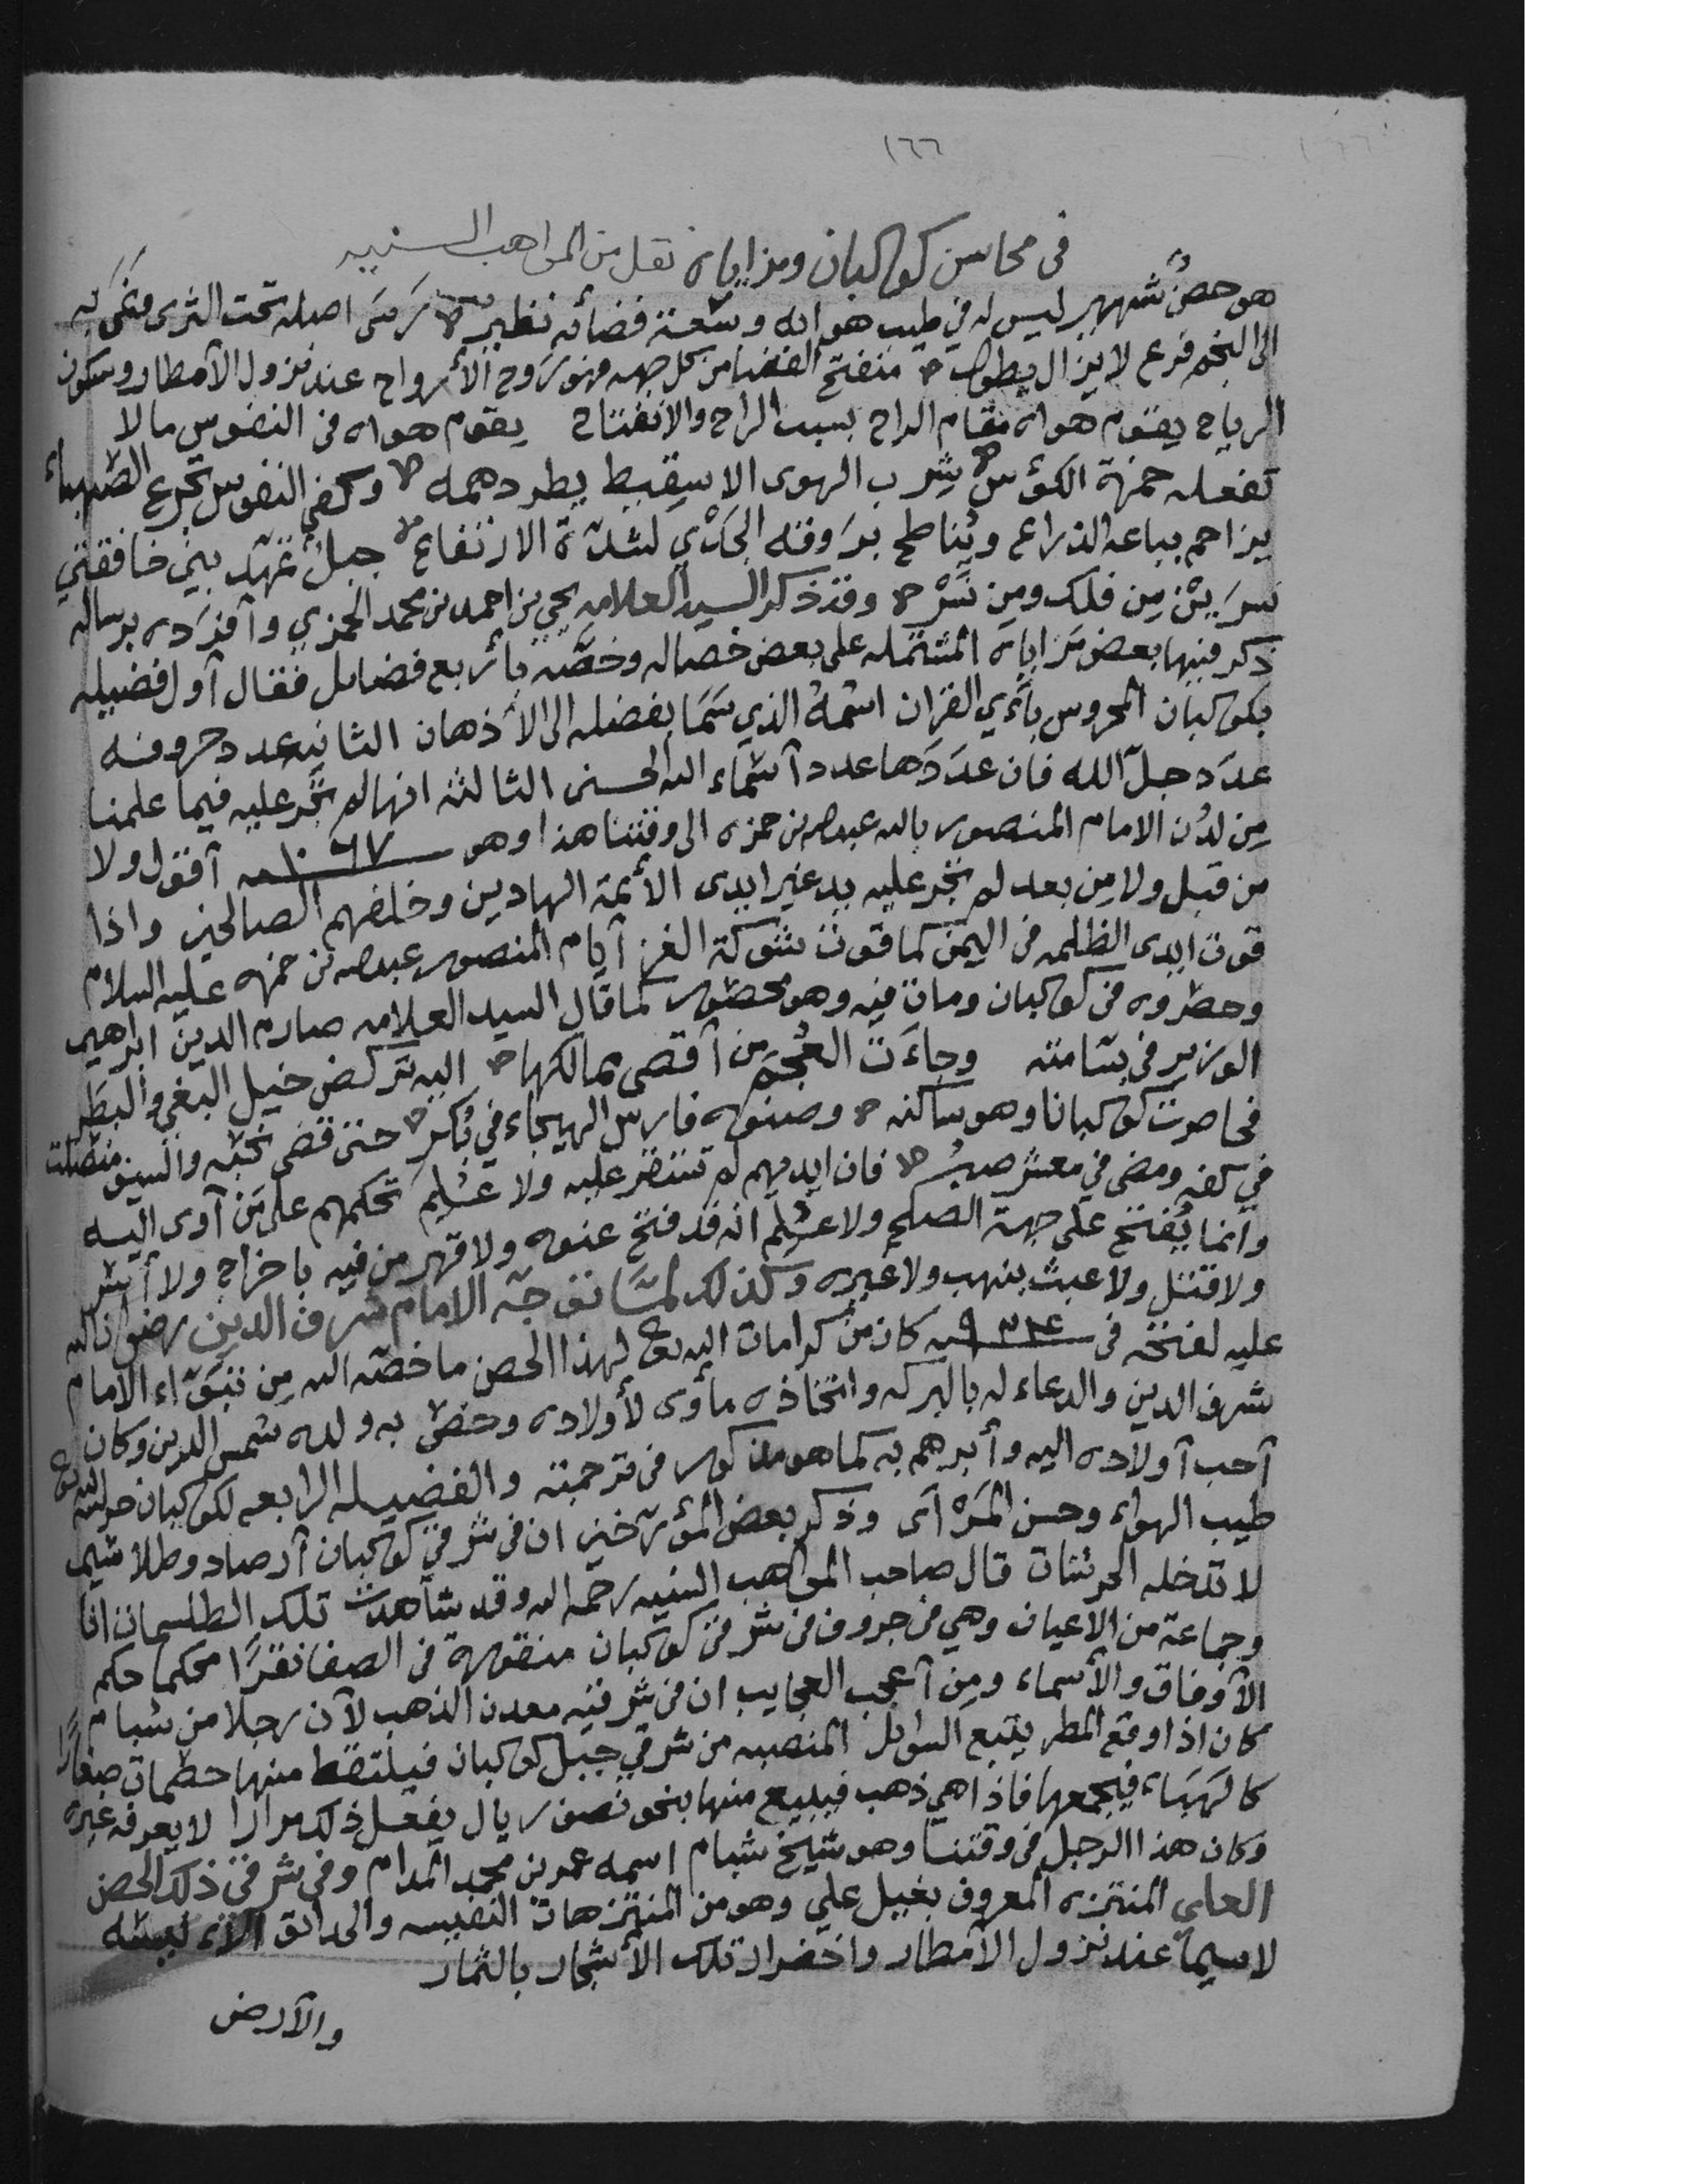 ١٦٦
في محاسن كوكبان ومزاياه نقل من المواهب السنيه
هو حصنٌ شهير ليس له في طيب هوائه وسَعة فضائه نظير رَسَى اصله تحت الثرى وسَمَى به
الى النجم فرع لا يزال يطول منفتح الفضا من كل جهه فهو رَوح الأرواح عند نزول الأمطار وسكون
الرياح يقوم هواه مقام الراح بسبب الراح والانفتاح يقوم هواه في النفوس مالا
تفعله خمرة الكؤس يشرب الهوى الا يطرد همه وكفى النفوس تجرع الصهباء
يزاحم بباعه الذراع ويُناطح برَوقه الجَدْي لشدّة الارتفاع جبلٌ تمهّد بين خافقتي
نسرَيْن مِن فلك ومِن نَسْر وقد ذكر السيد العلامه يحيى بن احمد بن محمد الحمزي وأفرَده برساله
ذكر فيها بعض مَزاياه المشتمله على بعض خصاله وخصَّه بأربع فضايل فقال أول فضيله
بكوكبان المحروس بآي القران اسْمُهُ الذي سَمَا بفضله الى الأذهان الثانيه عدد حروفه
عدَد جلّ الله فان عدَدَها عدد أسْمَاء الله الحسنى الثالثه انها لم تجْر عليه فيما علمنا
مِن لدُن الامام المنصور بالله عبدالله بن حمزه الى وقتنا هذا وهو ١٠٦٧ سنه أقول ولا
من قبل ولا مِن بعد لم تجْر عليه يد غير ايدى الأئمة الهادين وخلفهم الصالحين واذا
قوت ايدى الظلمه في اليمن كما قوت شوكة الغز أيام المنصور عبدالله بن حمزه عليه السلام
وحصروه في كوكبان ومات فيه وهو محصور كما قال السيد العلامه صارم الدين ابراهيم
الوزير في بسّامته وجاءَت العُجْم مِن أقصى ممالكها اليه تركض خيل البغي والبَطَر
فحاصرت كوكبانا وهو ساكنه وصنوه فارس الهيجاء في بُكُر حتى قضى نحبه والسيف منصلت
في كفه ومضى في معشر صبُر فان ايديهم لم تنتصر عليه ولا عُلِم تحكمهم على مَن أوى اليه
وانما يُفتح على جهة الصلح ولا عُلِم انه قد فتح عنوه ولا قهر من فيه باخراج ولا أسْر
ولا قتل ولا عبث بنهب ولا غيره وكذلك لمّا توجّه الامام شرف الدين رضوان الله
عليه لفتحه في ٩٣٤ سنه كان من كرامات الله تع لهذا الحصن ما خصّه الله مِن تبَوّاء الامام
شرف الدين والدعاء له بالبركه واتخاذه مأوى لأولاده وحضى به ولده شمس الدين وكان
أحب أولاده اليه وأبرهم به كما هو مذكور في ترجمته والفضيله الرابعه لكوكبان حرسه الله تع
طيب الهواء وحسن المَرْأى وذكر بعض المؤرّخين ان في شرقي كوكبان أرصاد وطلاسيم
لا تدخله الحرشات قال صاحب المواهب السنيه رحمه الله وقد شاهدت تلك الطلسمات انا
وجماعة من الاعيان وهي في جروف في شرقي كوكبان منقوره في الصفا نقرًا محكما حكم
الأوفاق والأسماء ومِن أعجب العجايب ان في شرقيه معدن الذهب لأن رجلا من شبام
كان اذا وقع المطر يتتبع السوايل المنصبه من شرقي جبل كوكبان فيلتقط منها حطمات صغارًا
كالهَبَاء فيجمعها فاذا هي ذهب فيبيع منها بنحو نصف ريال يفعل ذلك مرارا لا يعرفه غيره
وكان هذا الرجل في وقتنا وهو شيخ شبام اسمه عمر بن محمد المدام وفي شرقي ذلك الحصن
العلي المنتزه المعروف بغيل علي وهو من المنتزهات النفيسه والحدائق
لاسيما عند نزول الأمطار واخضرار تلك الأشجار بالثمار
والأرض